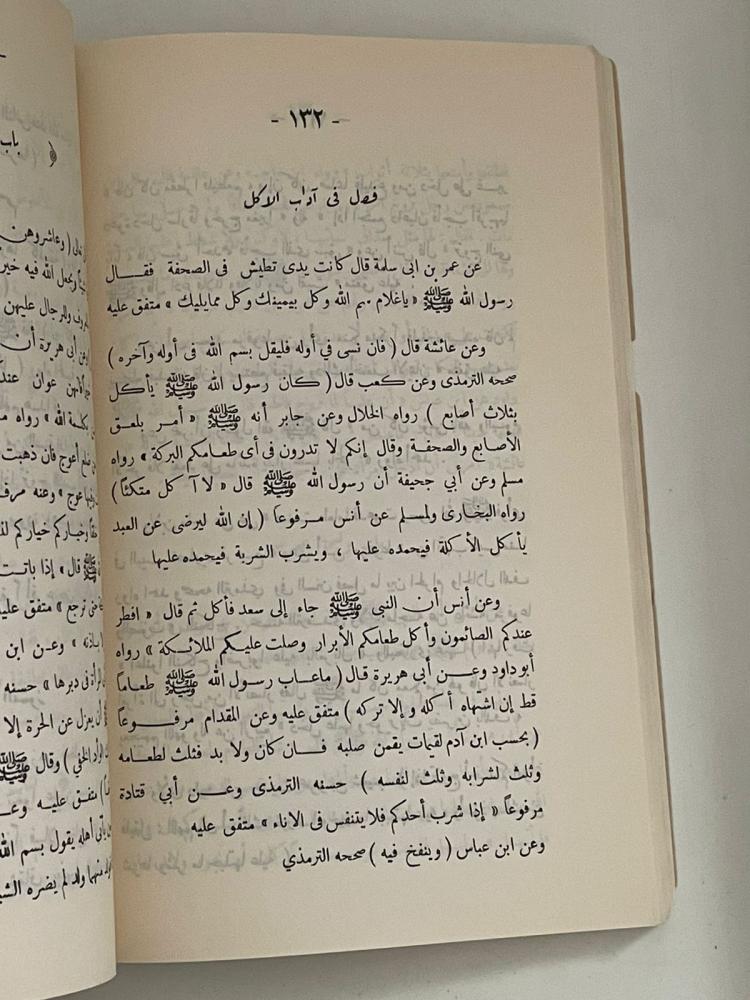 - ١٣٢ -
فصل فى آداب الاكل
عن عمر بن ابى سلمة قال كانت يدى تطيش فى الصحفة فقال
رسول الله ﷺ « ياغلام سم الله وكل بيمينك وكل ممايليك » متفق عليه
وعن عائشة قال ( فان نسى في أوله فليقل بسم الله فى أوله وآخره )
صححه الترمذى وعن كعب قال ( كان رسول الله ﷺ يأكل
بثلاث أصابع ) رواه الخلال وعن جابر أنه ﷺ « أمر بلعق
الأصابع والصحفة وقال إنكم لا تدرون فى أى طعامكم البركة » رواه
مسلم وعن أبي جحيفة أن رسول الله ﷺ قال « لا آ كل متكئاً )
رواه البخارى ولمسلم عن أنس مرفوعاً ( إن الله ليرضى عن العبد
يأكل الأكلة فيحمده عليها ، ويشرب الشربة فيحمده عليها
وعن أنس أن النبى ﷺ جاء إلى سعد فأكل ثم قال « افطر
عندكم الصائمون وأكل طعامكم الأبرار وصلت عليكم الملائكة » رواه
أبو داود وعن أبى هريرة قال ( ماعاب رسول الله ﷺ طعاماً
قط إن اشتهاه أ كله و إلا تركه ) متفق عليه وعن المقدام مرفوعاً
( بحسب ابن آدم لقيمات يقمن صلبه فان كان ولا بد فثلث لطعامه
وثلث لشرابه وثلث لنفسه ) حسنه الترمذى وعن أبي قتادة
مرفوعاً « إذا شرب أحدكم فلا يتنفس فى الاناء » متفق عليه
وعن ابن عباس ( وينفخ فيه ) صححه الترمذي
باب
( وعاشروهن
ويجعل الله فيه خير
والرجال عليهن
أبى هريرة أن
عوان عندكم
الله » رواه
ضلع أعوج فان ذهبت
عوج » وعنه مرف
وخياركم خياركم
ﷺ قال » إذا باتت
حتى ترجع » متفق عليه
باذنه » وعن ابن
فى دبرها » حسنه
أن يعزل عن الحرة إلا
الخفي ) وقال ﷺ
) متفق عليه وعن
يأتى أهله يقول بسم الله
منهما ولد لم يضره